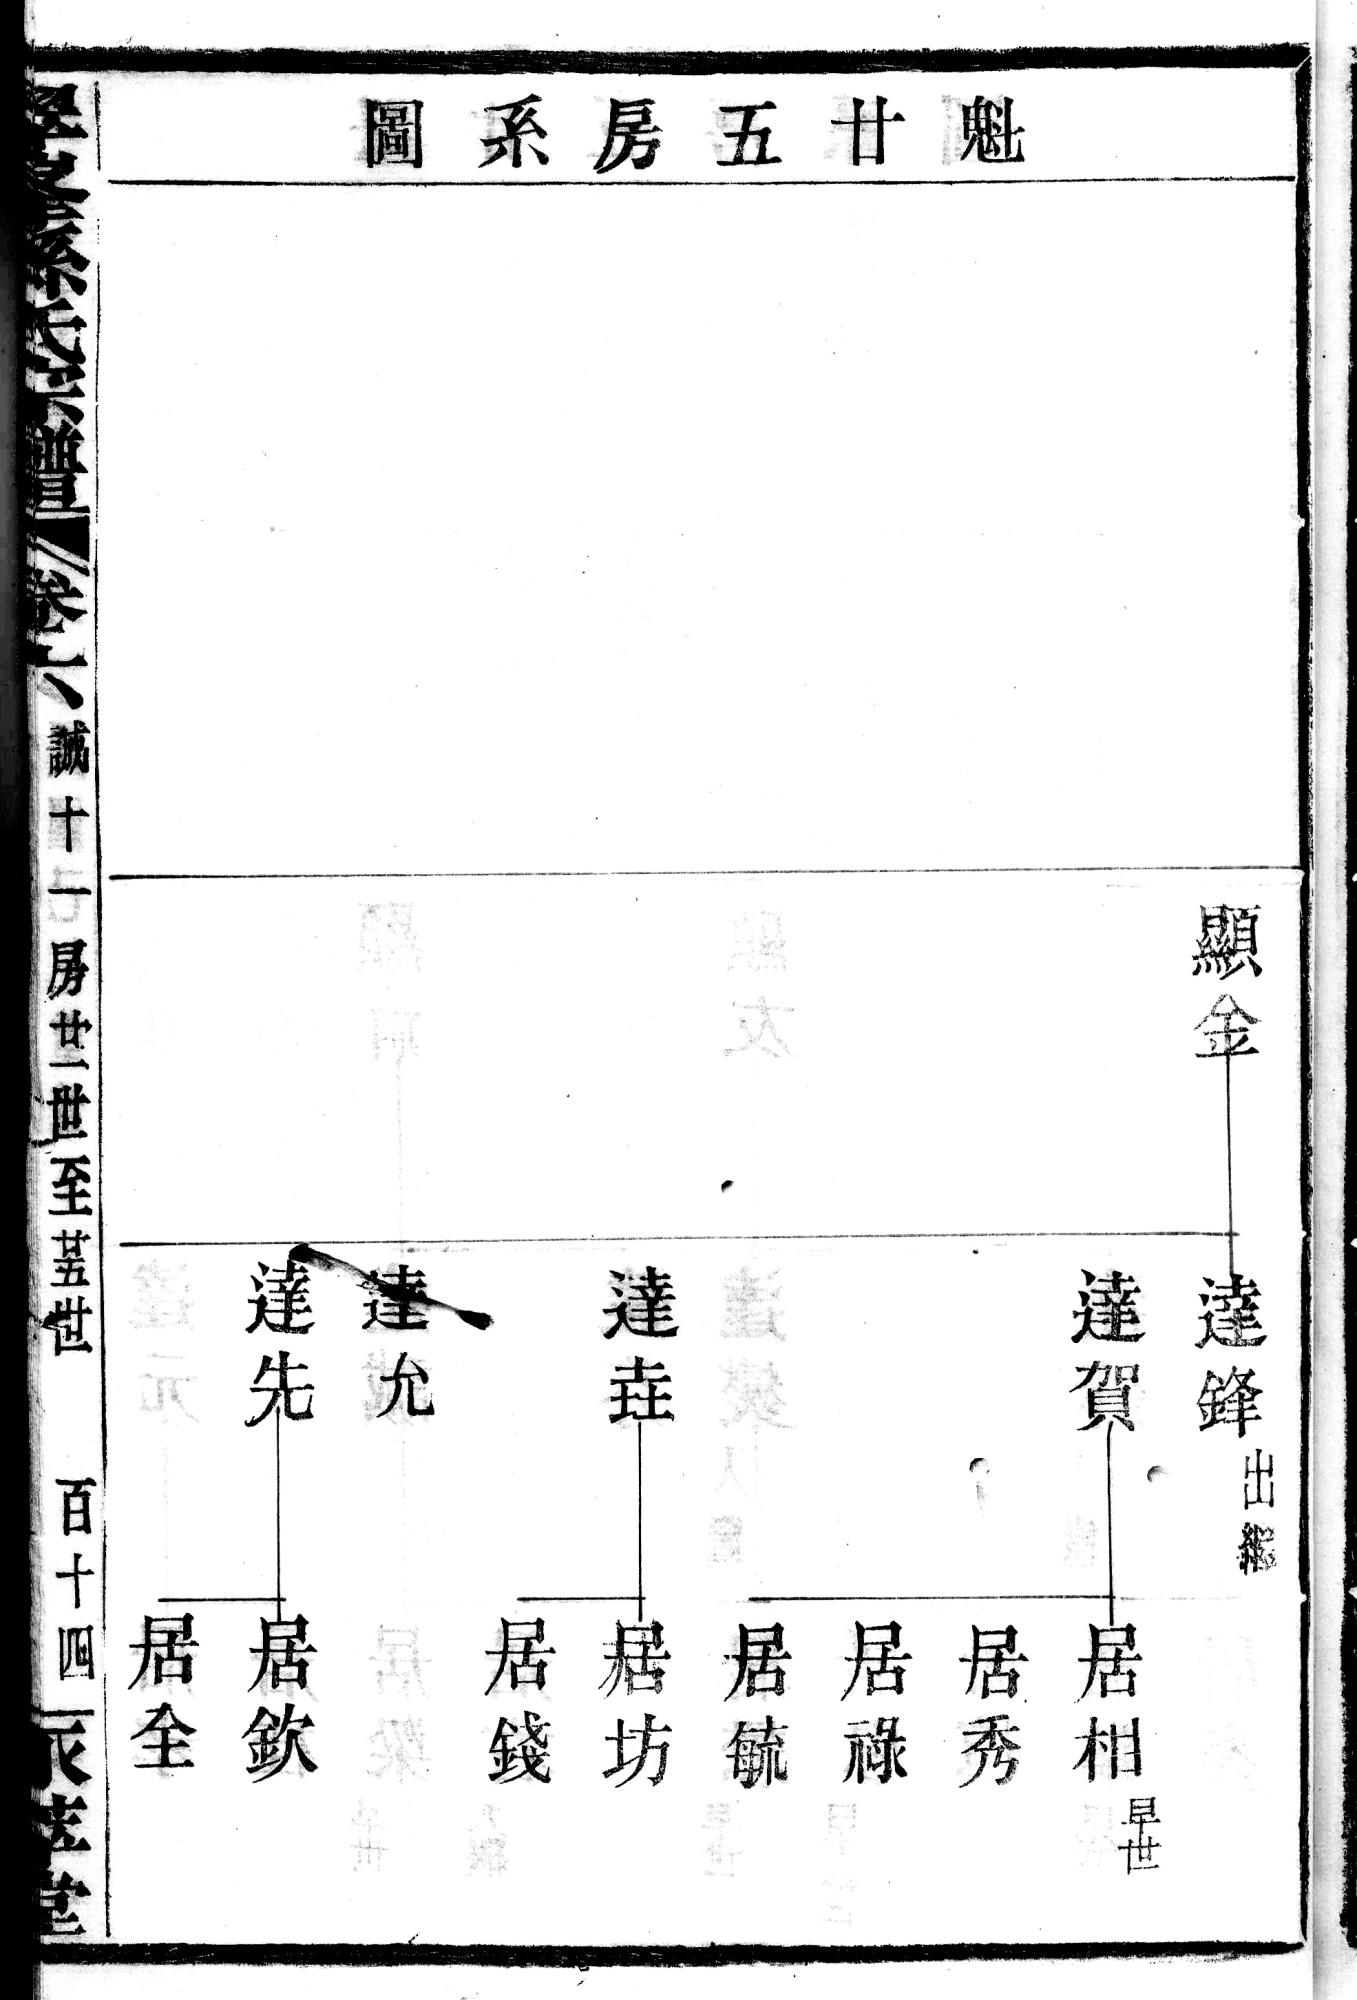 魁廿五房系圖
顯金
達鋒 出繼
達賀
達垚
達允
達先
居相 早世
居秀
居祿
居毓
居坊
居錢
居欽
居全
孫氏宗譜
卷六
誠十一房廿一世至廿五世
百十四
堂